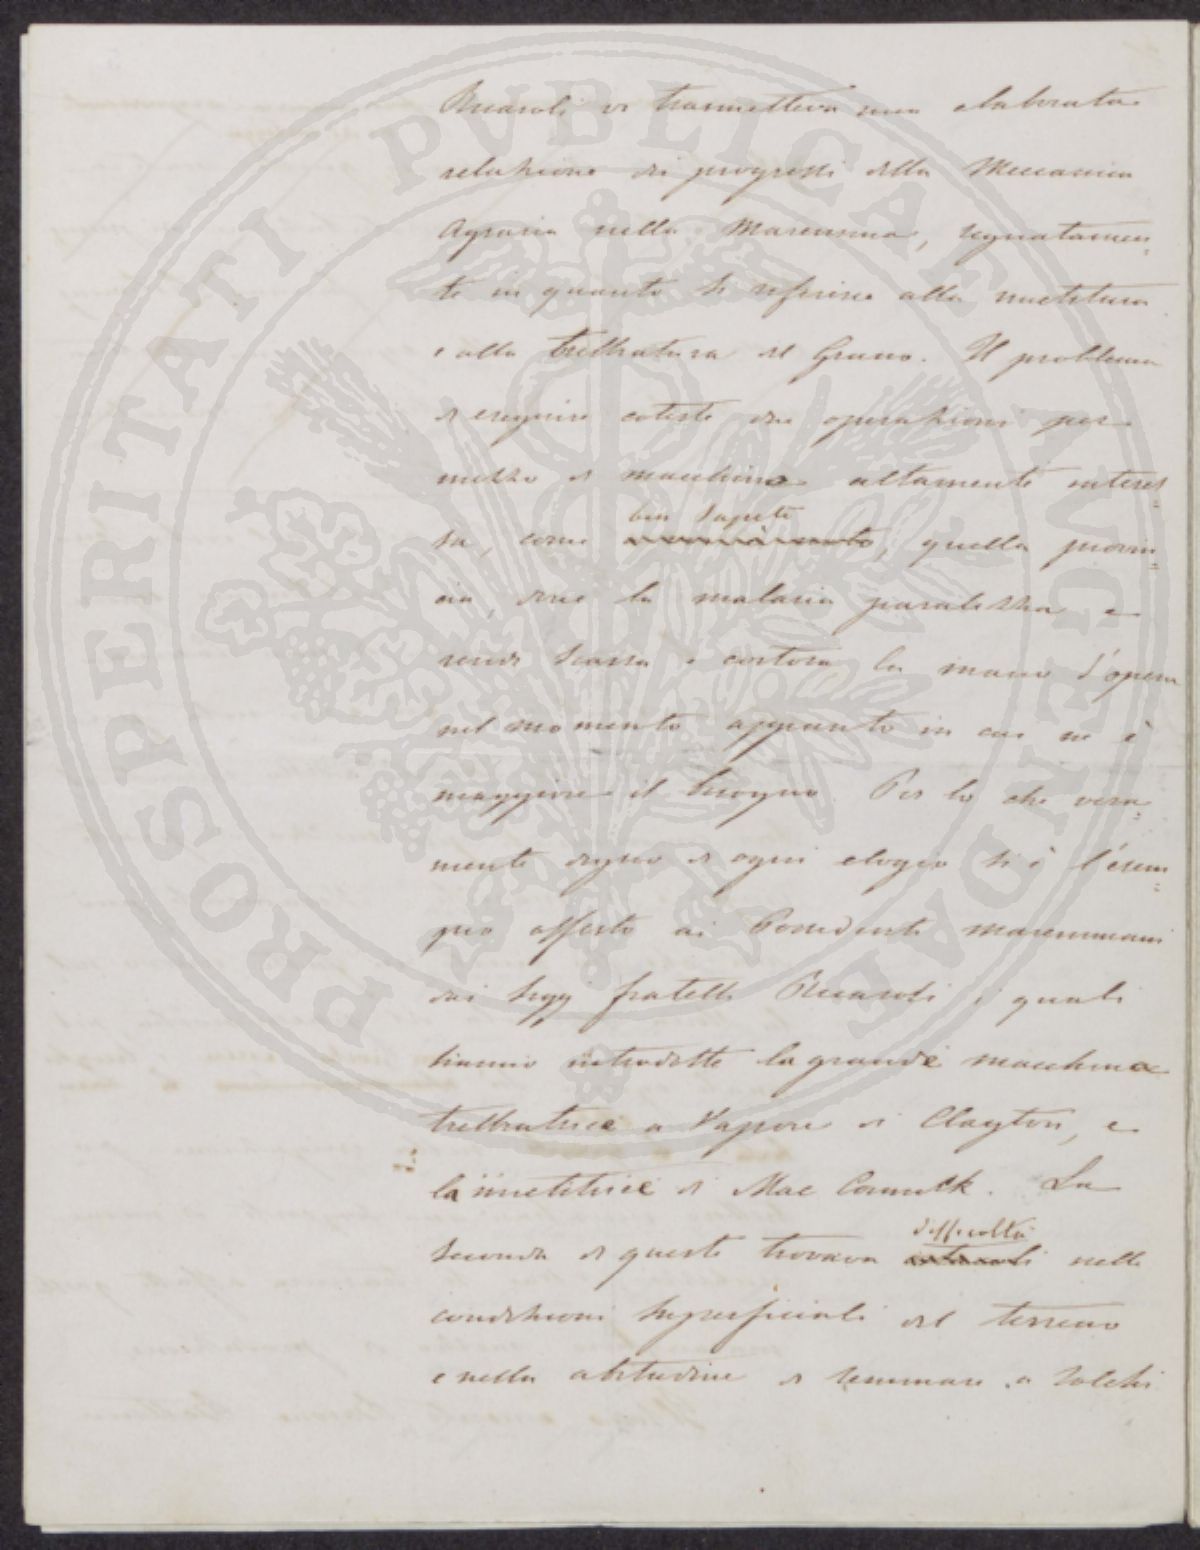 Ricasoli vi trasmetteva una elaborata
relazione dei progressi della Meccanica
Agraria nella Maremma, segnatamen=
te in quanto si riferisce alla mietitura
e alla trebbiatura del Grano. Il problema
di eseguire coteste due operazioni per
mezzo di macchine altamente interes=
ben sapete
sa, come quella provin=
cia, dove la malaria paralizza e
rende scarsa e costosa la mano d'opera
nel momento appunto in cui ne è
maggiore il bisogno. Per lo che vera=
mente degno di ogni elogio si è l'esem=
pio offerto ai Possidenti maremmani
dai Sigg fratelli Ricasoli i quali
hanno introdotte la grande macchina
trebbiatrice a Vapore di Clayton, e
la mietitrice di Mac Cormick. La
difficoltà
seconda di queste trovava nelle
condizioni superficiali del terreno
e nella abitudine di seminare a solchi
PROSPERITATI PUBLICAE AUGENDAE